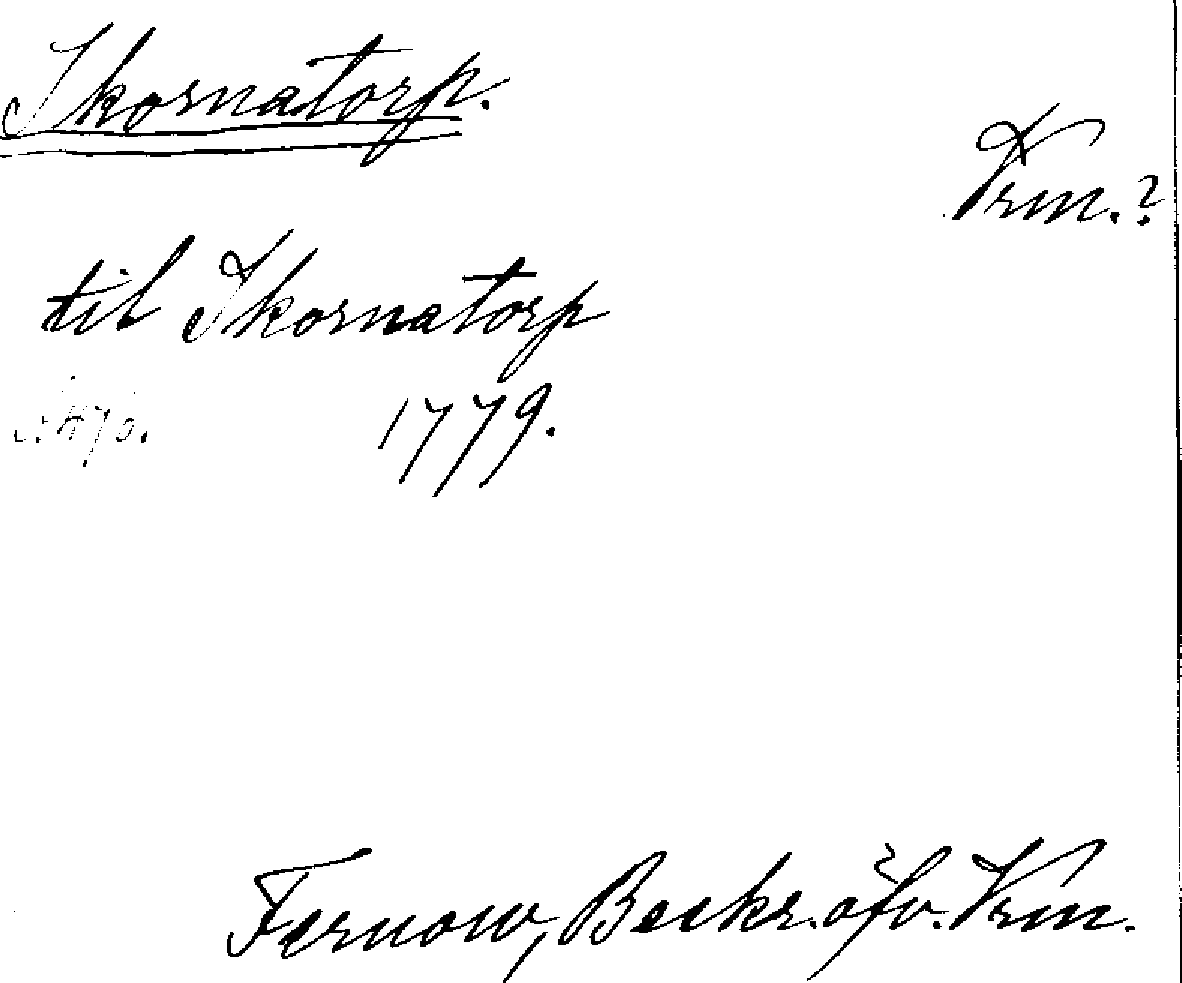 Skornatorp.
Vrm.?
til Skornatorp
1779.
Fernow, Beskr. öfv. Vrm.